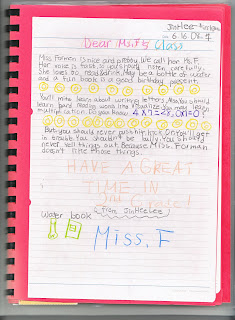 JinHeeLee
Dear Ms. F's Class
Miss. Forman is nice and pretty. We call her Ms. F
Her voice is fast, so you should listen carefully.
She loves to read & drink. Maybe a bottle of water
and a fun book is a good birthday present.
You'll write lears about writing letters. Also, you should
learn hard reading words like visualize. You may learn
multiplication. Do you know 4x7=28, OK=0?
But you should never push or kick. Or, you'll get
in trouble. You shouldn't be bully. You should
never yell things out. Because Miss. Forman
doesn't like those things.
HAVE A GREAT
TIME IN
3rd Grade!
From JinHeeLee
Water book
Miss. F